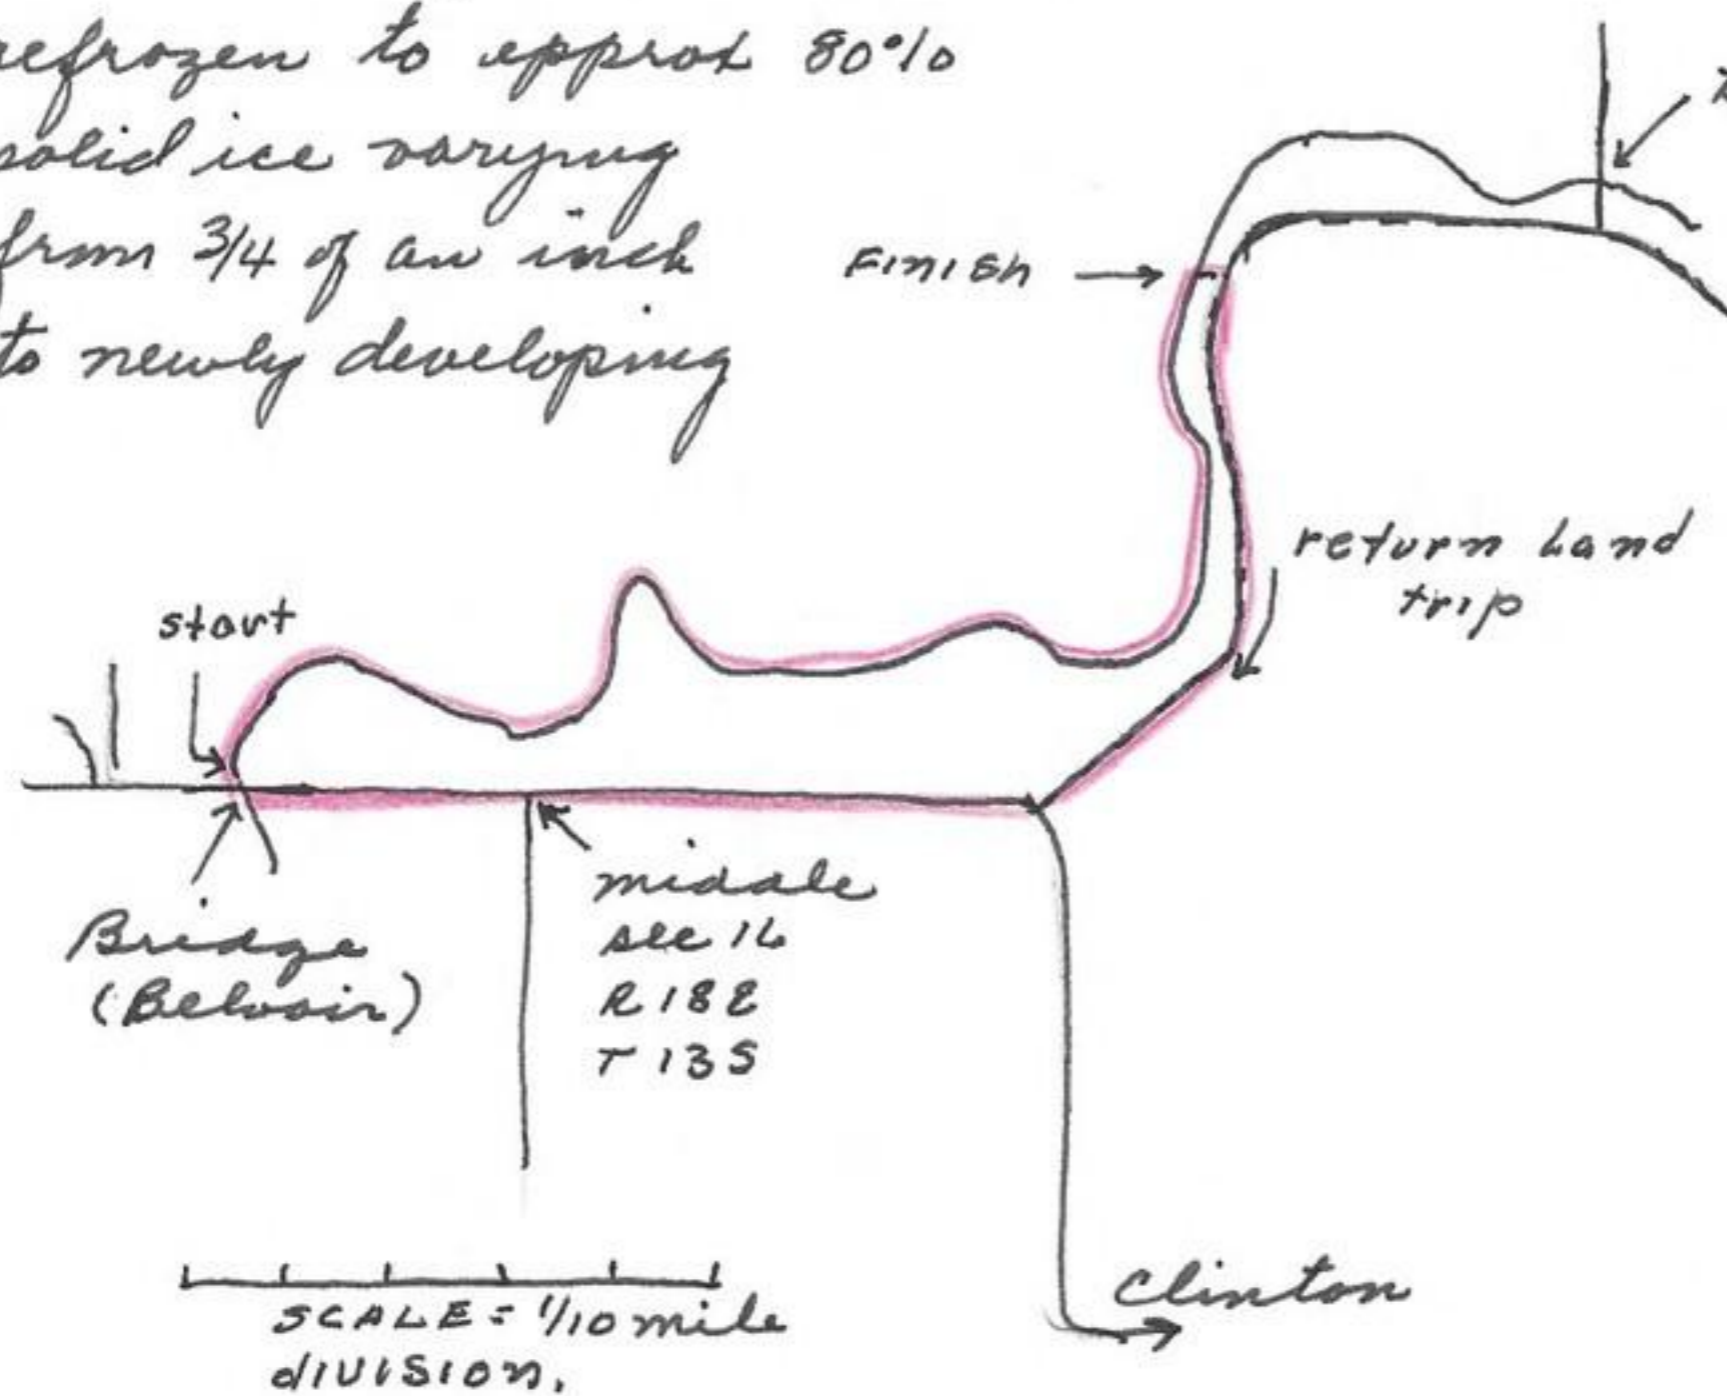 refrozen to approx 80%
solid ice varying
from 3/4 of an inch
to newly developing
Finish
return Land
trip
start
Bridge
(Belvoir)
middle
sec 16
R 18E
T 13S
SCALE = 1/10 mile
division.
Clinton